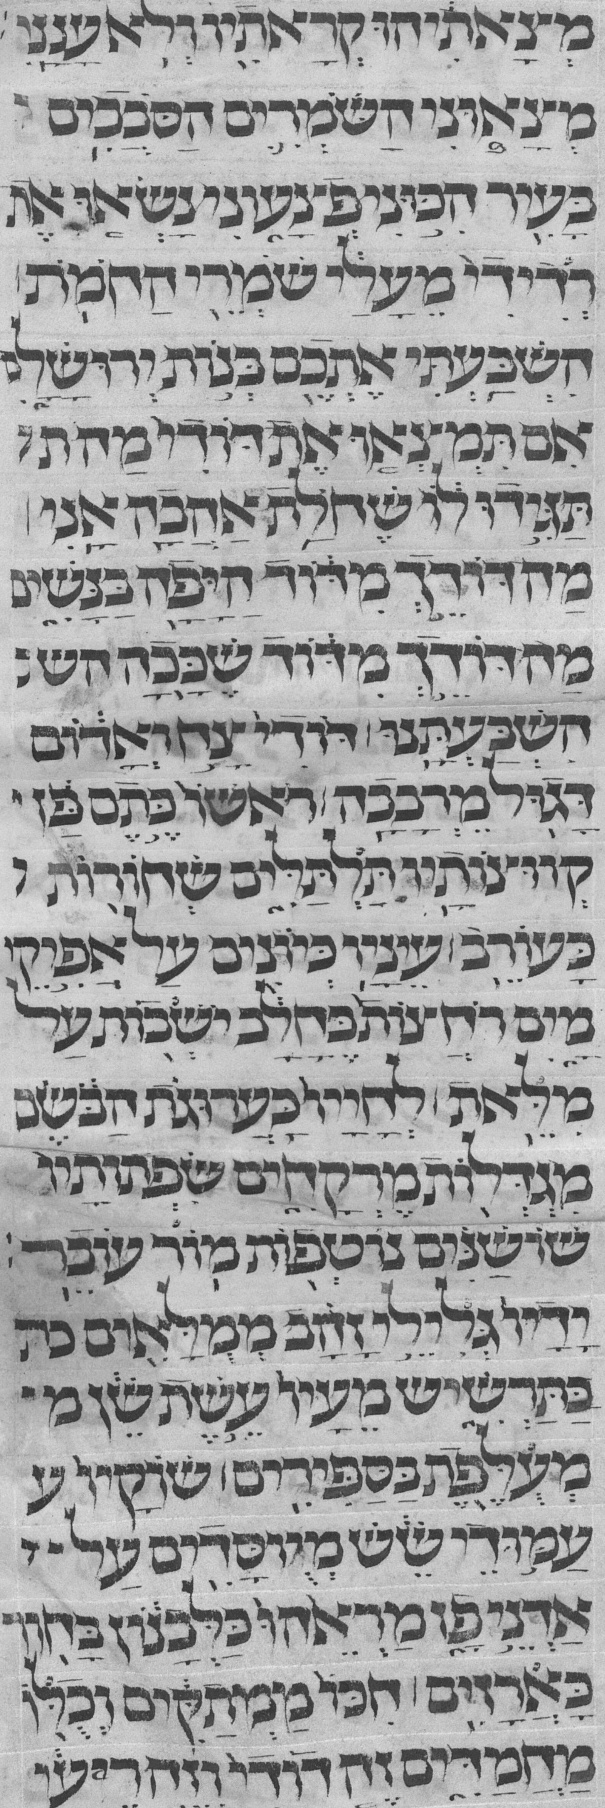 מְצָאתִיהוּ קְרָאתִיו וְלֹא עָנָנִי
מְצָאוּנִי הַשֹּׁמְרִים הַסֹּבְבִים
בָּעִיר הִכּוּנִי פְצָעוּנִי נָשְׂאוּ אֶת
רְדִידִי מֵעָלַי שֹׁמְרֵי הַחֹמֹת
הִשְׁבַּעְתִּי אֶתְכֶם בְּנוֹת יְרוּשָׁלִָם
אִם תִּמְצְאוּ אֶת דּוֹדִי מַה ת
תַּגִּידוּ לוֹ שֶׁחוֹלַת אַהֲבָה אָנִי
מַה דּוֹדֵךְ מִדּוֹד הַיָּפָה בַּנָּשִׁים
מַה דּוֹדֵךְ מִדּוֹד שֶׁכָּכָה השׁ
הִשְׁבַּעְתָּנוּ דּוֹדִי צַח וְאָדוֹם
דָּגוּל מֵרְבָבָה רֹאשׁוֹ כֶּתֶם פָּז
קְווּצּוֹתָיו תַּלְתַּלִּים שְׁחוֹרוֹת
כָּעוֹרֵב עֵינָיו כְּיוֹנִים עַל אֲפִיקֵי
מָיִם רֹחֲצוֹת בֶּחָלָב יֹשְׁבוֹת עַל
מִלֵּאת לְחָיָיו כַּעֲרוּגַת הַבֹּשֶׂם
מִגְדְּלוֹת מֶרְקָחִים שִׂפְתוֹתָיו
שׁוֹשַׁנִּים נוֹטְפוֹת מוֹר עוֹבֵר
יָדָיו גְּלִילֵי זָהָב מְמֻלָּאִים בת
בַּתַּרְשִׁישׁ מֵעָיו עֶשֶׁת שֵׁן מ
מְעֻלֶּפֶת סַפִּירִים שׁוֹקָיו ע
עַמּוּדֵי שֵׁשׁ מְיוּסָּדִים עַל
אַדְנֵי פָז מַרְאֵהוּ כַּלְּבָנוֹן בָּחוּר
כָּאֲרָזִים חִכּוֹ מַמְתַקִּים וְכֻלּוֹ
מַחֲמַדִּים זֶה דוֹדִי וְזֶה רֵעִי